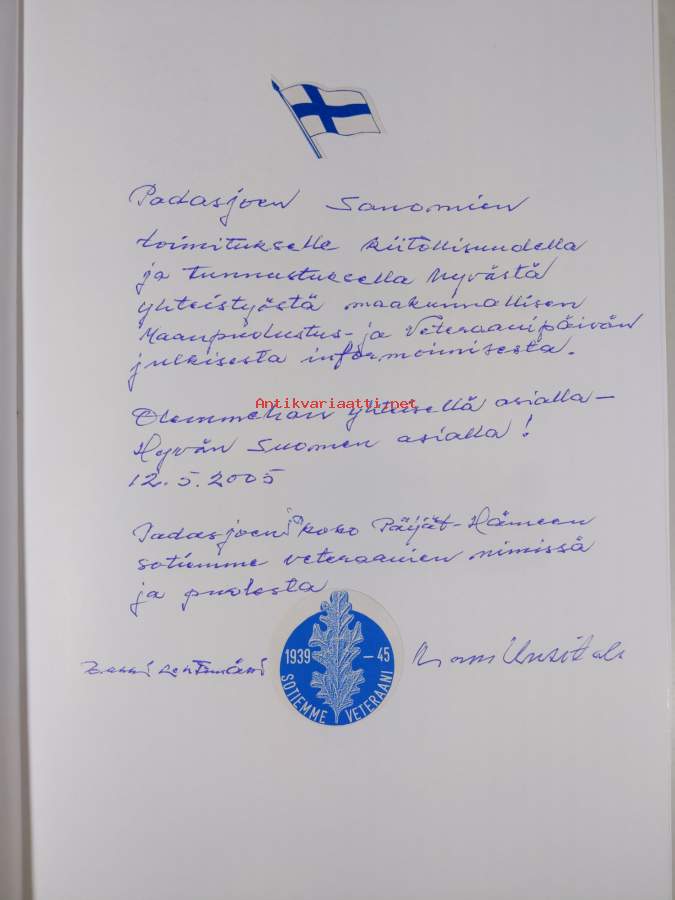 Padasjoen Sanomien
toimitukselle kiitollisuudella
ja tunnustuksella hyvästä
yhteistyöstä maakunnallisen
Maanpuolustus- ja Veteraanipäivän
julkisesta informoimisesta.
Antikvariaatti.net
Olemmehan yhteisellä asialla –
Hyvän Suomen asialla!
12.5.2005
Padasjoen ja koko Päijät-Hämeen
sotiemme veteraanien nimissä
ja puolesta
1939 – 45
SOTIEMME VETERAANI